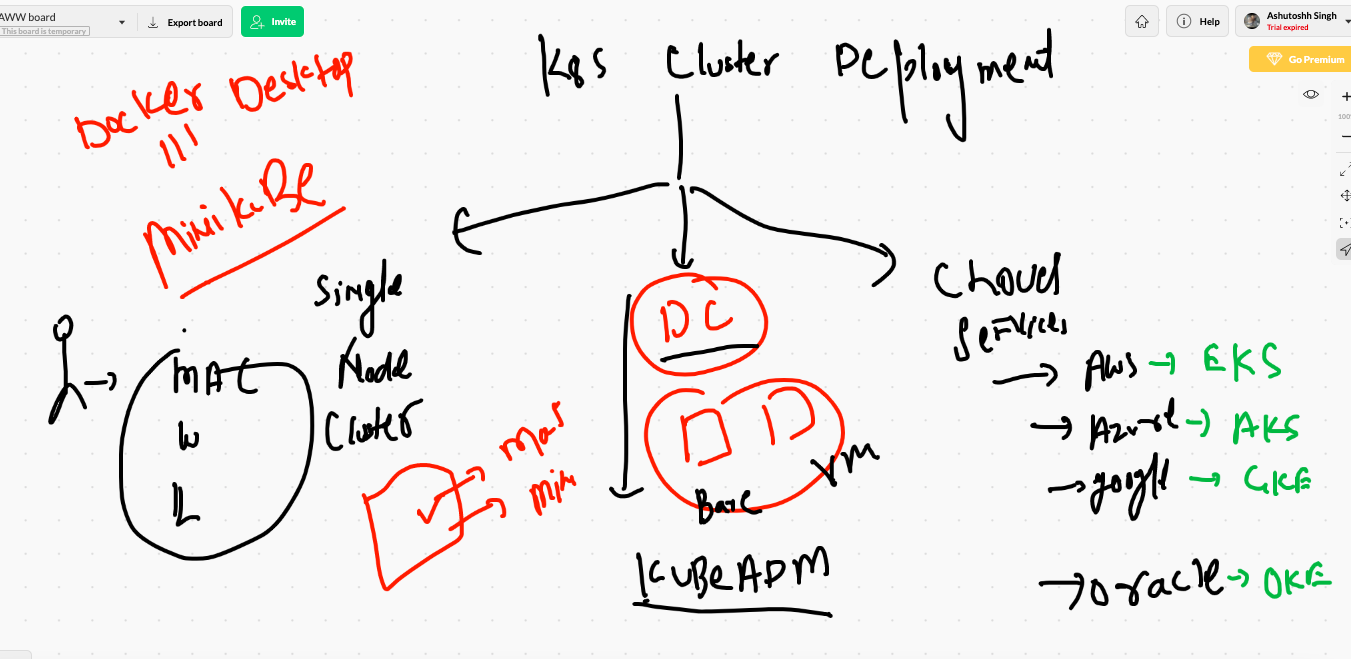 AWW board
This board is temporary
Export board
Invite
Help
Ashutoshh Singh
Trial expired
Go Premium
K8S Cluster DEployment
Docker Desktop
MinikuBe
Single
Node
Cluster
MAC
W
L
Mas
Min
DC
Bare
VM
KUBeADM
Cloud
Services
Aws → EKS
Azure → AKS
google → GKE
oracle → OKE